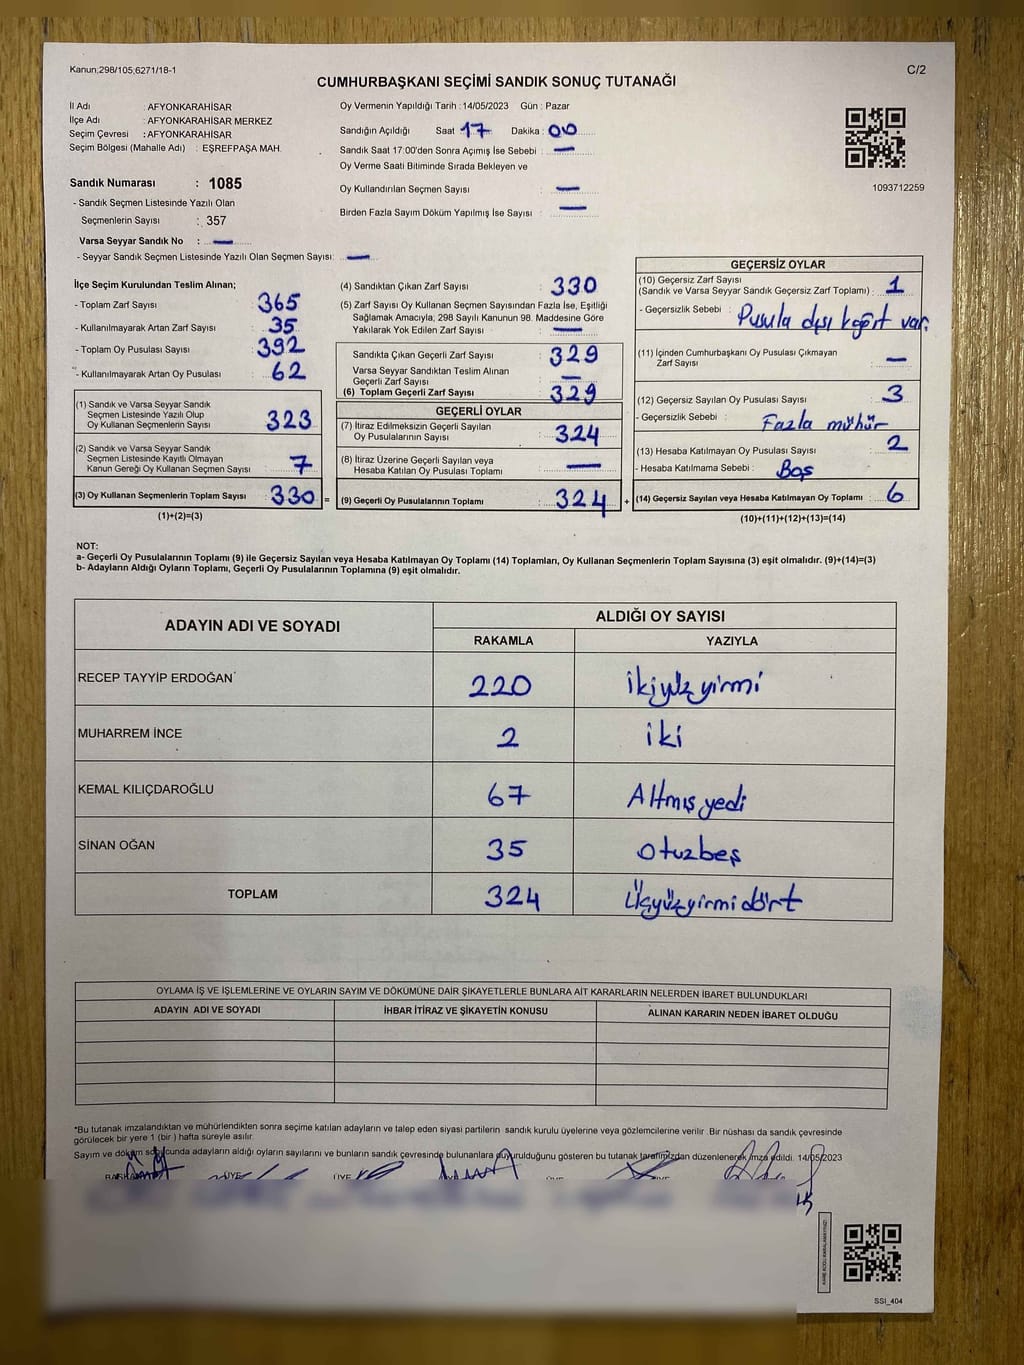 Kanun;298/105;6271/18-1
C/2
CUMHURBAŞKANI SEÇİMİ SANDIK SONUÇ TUTANAĞI
İl Adı : AFYONKARAHİSAR
İlçe Adı : AFYONKARAHİSAR MERKEZ
Seçim Çevresi : AFYONKARAHİSAR
Seçim Bölgesi (Mahalle Adı) : EŞREFPAŞA MAH.
Sandık Numarası : 1085
- Sandık Seçmen Listesinde Yazılı Olan
Seçmenlerin Sayısı : 357
Varsa Seyyar Sandık No : —
- Seyyar Sandık Seçmen Listesinde Yazılı Olan Seçmen Sayısı: —
Oy Vermenin Yapıldığı Tarih : 14/05/2023 Gün : Pazar
Sandığın Açıldığı Saat : 17 Dakika : 00
Sandık Saat 17:00'den Sonra Açmış İse Sebebi : —
Oy Verme Saati Bitiminde Sırada Bekleyen ve
Oy Kullandırılan Seçmen Sayısı : —
Birden Fazla Sayım Döküm Yapılmış İse Sayısı : —
1093712259
İlçe Seçim Kurulundan Teslim Alınan;
- Toplam Zarf Sayısı : 365
- Kullanılmayarak Artan Zarf Sayısı : 35
- Toplam Oy Pusulası Sayısı : 392
- Kullanılmayarak Artan Oy Pusulası : 62
(1) Sandık ve Varsa Seyyar Sandık
Seçmen Listesinde Yazılı Olup
Oy Kullanan Seçmenlerin Sayısı : 323
(2) Sandık ve Varsa Seyyar Sandık
Seçmen Listesinde Kayıtlı Olmayan
Kanun Gereği Oy Kullanan Seçmen Sayısı : 7
(3) Oy Kullanan Seçmenlerin Toplam Sayısı : 330 =
(1)+(2)=(3)
(4) Sandıktan Çıkan Zarf Sayısı : 330
(5) Zarf Sayısı Oy Kullanan Seçmen Sayısından Fazla İse, Eşitliği
Sağlamak Amacıyla, 298 Sayılı Kanunun 98. Maddesine Göre
Yakılarak Yok Edilen Zarf Sayısı : —
Sandıkta Çıkan Geçerli Zarf Sayısı : 329
Varsa Seyyar Sandıktan Teslim Alınan
Geçerli Zarf Sayısı : —
(6) Toplam Geçerli Zarf Sayısı : 329
GEÇERLİ OYLAR
(7) İtiraz Edilmeksizin Geçerli Sayılan
Oy Pusulalarının Sayısı : 324
(8) İtiraz Üzerine Geçerli Sayılan veya
Hesaba Katılan Oy Pusulası Toplamı : —
(9) Geçerli Oy Pusulalarının Toplamı : 324 +
GEÇERSİZ OYLAR
(10) Geçersiz Zarf Sayısı
(Sandık ve Varsa Seyyar Sandık Geçersiz Zarf Toplamı) : 1
- Geçersizlik Sebebi : Pusula dışı kağıt var.
(11) İçinden Cumhurbaşkanı Oy Pusulası Çıkmayan
Zarf Sayısı : —
(12) Geçersiz Sayılan Oy Pusulası Sayısı : 3
- Geçersizlik Sebebi : Fazla mühür
(13) Hesaba Katılmayan Oy Pusulası Sayısı : 2
- Hesaba Katılmama Sebebi : Boş
(14) Geçersiz Sayılan veya Hesaba Katılmayan Oy Toplamı : 6
(10)+(11)+(12)+(13)=(14)
NOT:
a- Geçerli Oy Pusulalarının Toplamı (9) ile Geçersiz Sayılan veya Hesaba Katılmayan Oy Toplamı (14) Toplamları, Oy Kullanan Seçmenlerin Toplam Sayısına (3) eşit olmalıdır. (9)+(14)=(3)
b- Adayların Aldığı Oyların Toplamı, Geçerli Oy Pusulalarının Toplamına (9) eşit olmalıdır.
ADAYIN ADI VE SOYADI
ALDIĞI OY SAYISI
RAKAMLA YAZIYLA
RECEP TAYYİP ERDOĞAN 220 ikiyüzyirmi
MUHARREM İNCE 2 iki
KEMAL KILIÇDAROĞLU 67 Altmışyedi
SİNAN OĞAN 35 otuzbeş
TOPLAM 324 üçyüzyirmidört
OYLAMA İŞ VE İŞLEMLERİNE VE OYLARIN SAYIM VE DÖKÜMÜNE DAİR ŞİKAYETLERLE BUNLARA AİT KARARLARIN NELERDEN İBARET BULUNDUKLARI
ADAYIN ADI VE SOYADI İHBAR İTİRAZ VE ŞİKAYETİN KONUSU ALINAN KARARIN NEDEN İBARET OLDUĞU
*Bu tutanak imzalandıktan ve mühürlendikten sonra seçime katılan adayların ve talep eden siyasi partilerin sandık kurulu üyelerine veya gözlemcilerine verilir .Bir nüshası da sandık çevresinde
görülecek bir yere 1 (bir ) hafta süreyle asılır.
Sayım ve döküm sonucunda adayların aldığı oyların sayılarını ve bunların sandık çevresinde bulunanlara duyurulduğunu gösteren bu tutanak tarafımızdan düzenlenerek imza edildi. 14/05/2023
SSI_404